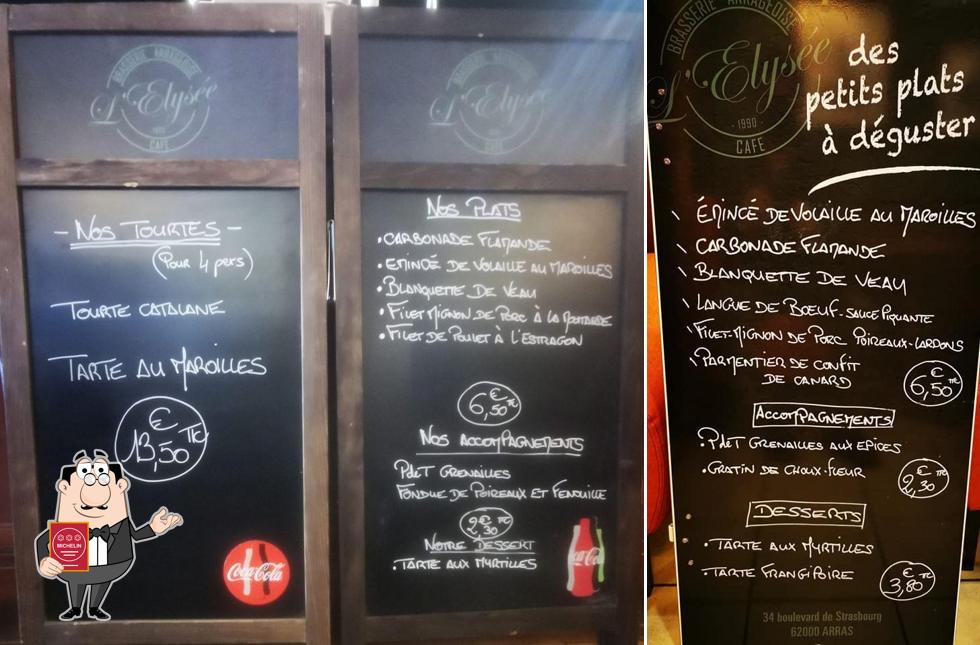 BRASSERIE ARRAGEOISE
L'Elysée
1990
CAFE
- NOS TOURTES -
(Pour 4 pers)
TOURTE CATALANE
TARTE AU MAROILLES
13,50 € TTC
MICHELIN
Coca-Cola
BRASSERIE ARRAGEOISE
L'Elysée
CAFE
NOS PLATS
• CARBONADE FLAMANDE
• EMINCÉ DE VOLAILLE AU MAROILLES
• BLANQUETTE DE VEAU
• FILET MIGNON DE PORC À LA MOUTARDE
• FILET DE POULET À L'ESTRAGON
6,50 € TTC
NOS ACCOMPAGNEMENTS
PDET GRENAILLES
FONDUE DE POIREAUX ET FENOUILLE
2,30 € TTC
NOTRE DESSERT
• TARTE AUX MYRTILLES
Coca-Cola
BRASSERIE ARRAGEOISE
L'Elysée
- 1990 -
CAFE
des
petits plats
à déguster
\ ÉMINCÉ DE VOLAILLE AU MAROILLES
\ CARBONADE FLAMANDE
\ BLANQUETTE DE VEAU
\ LANGUE DE BOEUF - SAUCE PIQUANTE
\ FILET-MIGNON DE PORC POIREAUX-LARDONS
\ PARMENTIER DE CONFIT
DE CANARD
6,50 € TTC
ACCOMPAGNEMENTS
• PDET GRENAILLES AUX EPICES
• GRATIN DE CHOUX-FLEUR
2,30 € TTC
DESSERTS
• TARTE AUX MYRTILLES
• TARTE FRANGIPOIRE
3,80 € TTC
34 boulevard de Strasbourg
62000 ARRAS